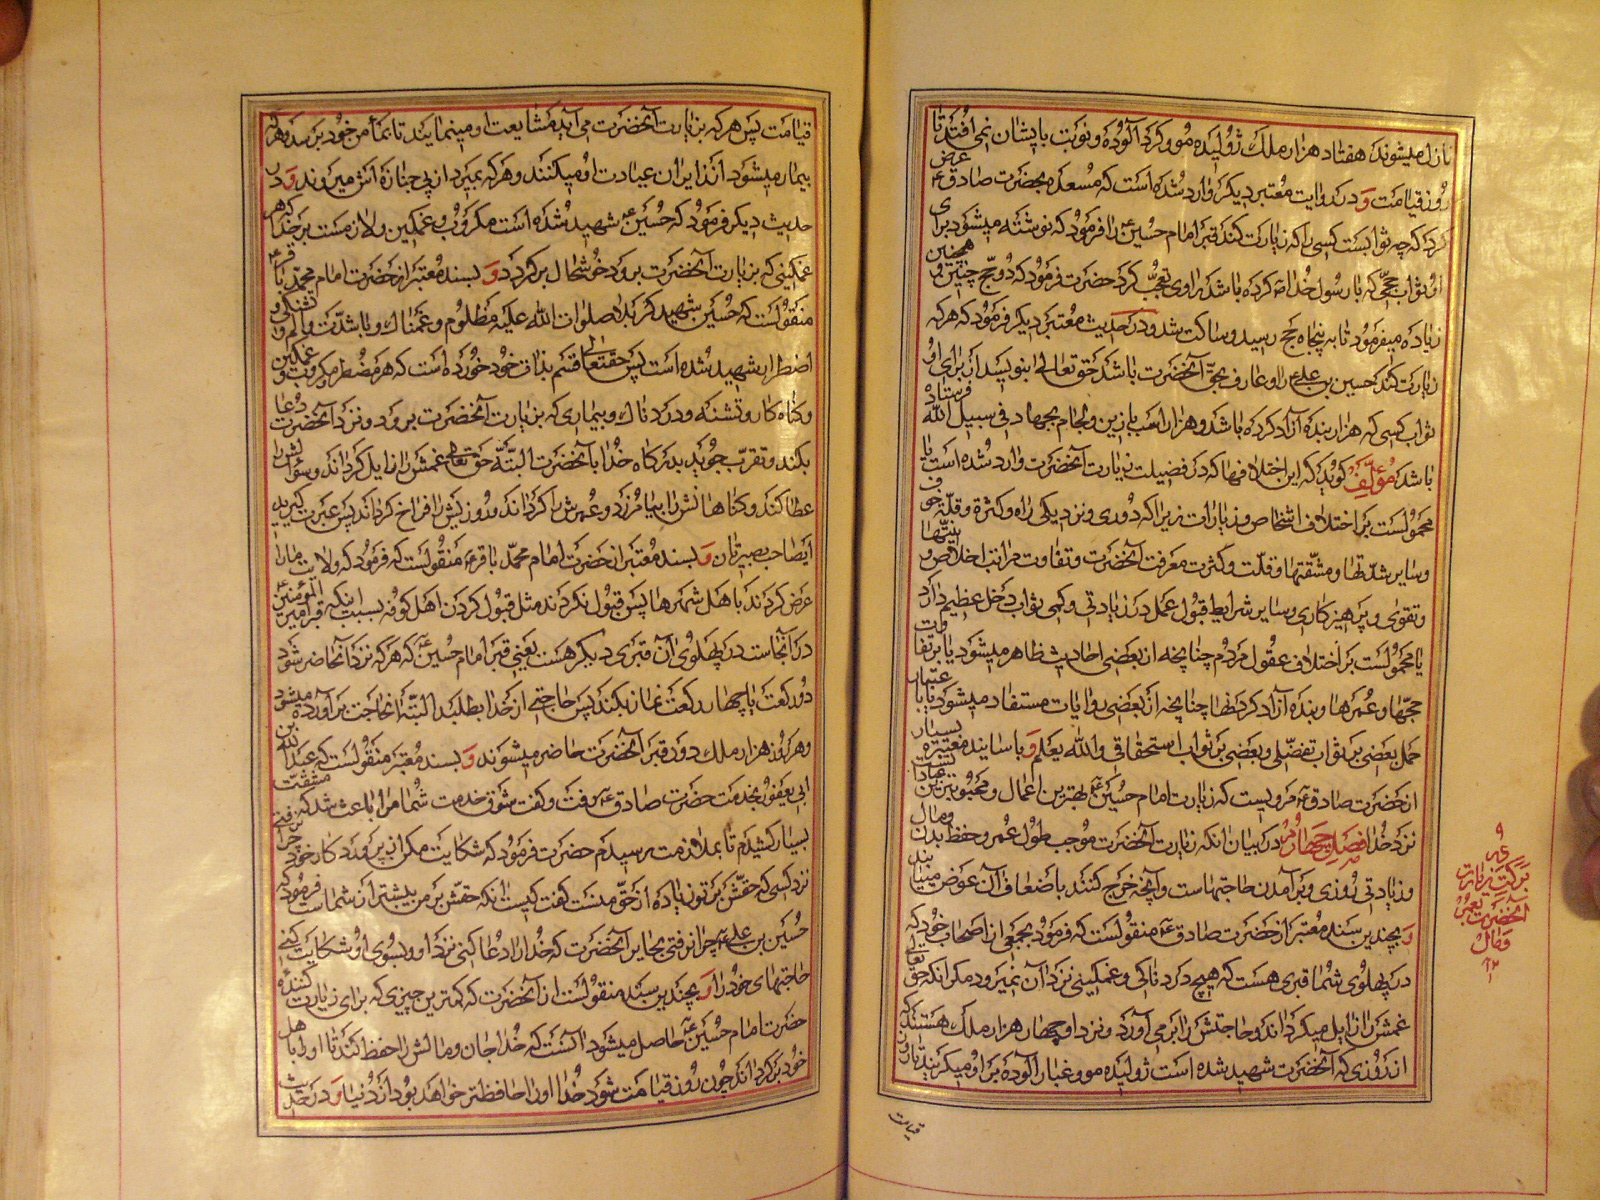 نازل میشوند هفتاد هزار ملک ژولیده مو و گرد آلوده و نوبت بایشان نمی افتد تا
روز قیامت و در روایت معتبر دیگر وارد شده است که مسعده بحضرت صادق ع عرض
کرد که چه ثوابست کسی را که زیارت کند قبر امام حسین ع را فرمود که نوشته میشود برای
او ثواب حجی که با رسول خدا ص کرده باشد راوی تعجب کرد حضرت فرمود که دو حج و همچنین
زیاده میفرمود تا به پنجاه حج رسید و ساکت شد و در حدیث معتبر دیگر فرمود که هر که
زیارت کند حسین بن علی ع را و عارف بحق آنحضرت باشد حق تعالی بنویسد از برای او
ثواب کسی که هزار بنده آزاد کرده باشد و هزار اسب با زین و لجام بجهاد فی سبیل الله فرستاده
باشد مؤلف گوید که این اختلافها که در فضیلت زیارت آنحضرت وارد شده است یا
محمولست بر اختلاف اشخاص و زیارات زیرا که دوری و نزدیکی راه و کثرة و قلة خوف
و سایر شدتها و مشقتها و قلت و کثرت معرفت آنحضرت و تفاوت مراتب اخلاص و نیتها
و تقوی و پرهیزکاری و سایر شرایط قبول عمل در زیادتی و کمی ثواب دخل عظیم دارد
یا محمولست بر اختلاف عقول مردم چنانچه از بعضی احادیث ظاهر میشود یا بر تفاوت
حجها و عمرها و بنده آزاد کردنها چنانچه از بعضی روایات مستفاد میشود یا با عتبار
حمل بعضی بر ثواب تفضلی و بعضی بر ثواب استحقاقی والله یعلم و باسانید معتبره بسیار
از حضرت صادق ع مرویست که زیارت امام حسین ع بهترین اعمال و محبوبترین عبادتست
نزد خدا فصل چهارم در بیان آنکه زیارت آنحضرت موجب طول عمر و حفظ بدن و مال
و زیادتی روزی و برآمدن حاجتهاست و آنچه خرج کنند باضعاف آن عوض مییابند
و بچندین سند معتبر از حضرت صادق ع منقولست که فرمود بجمعی از اصحاب خود که
در پهلوی شما قبری هست که هیچ دردناکی و غمگینی نزد آن نمیرود مگر آنکه حق تعالی
غمش را زایل میگرداند و حاجتش را بر می آورد و نزد او چهار هزار ملک هستند که
از روزی که آنحضرت شهید شده است ژولیده مو و غبار آلوده بر او میگریند تا روز
قیامت
برکت زیارت
آنحضرت بعمر
و مال
قیامت پس هر که بزیارت آنحضرت می آید مشایعت او مینمایند تا بمأمن خود برسد و هر که
بیمار میشود از زایران عیادت او میکنند و هر که بمیرد از پی جنازه اش میروند و در
حدیث دیگر فرمود که حسین ع شهید شده است مکروب و غمگین و لازمست بر خدا که هر
غمگینی که بزیارت آنحضرت برود خوشحال برگردد و بسند معتبر از حضرت امام محمد باقر ع
منقولست که حسین شهید کربلا صلوات الله علیه مظلوم و غمناک و با شدت و الم و تشنگی و
اضطرار شهید شده است پس حقتعالی قسم بذات خود خورده است که هر مضطر مکروب و غمگین
و گناه کار و تشنه و دردناک و بیماری که بزیارت آنحضرت برود و نزد آنحضرت دعا
بکند و تقرب جوید بدرگاه خدا بآنحضرت البته حق تعالی غمش را زایل گرداند و سؤالش را
عطا کند و گناهانش را بیامرزد و عمرش را دراز گرداند و روزیش را فراخ گرداند پس عبرت گیرید
ای صاحب بصیرتان و بسند معتبر از حضرت امام محمد باقر ع منقولست که فرمود که ولایت ما را
عرض کردند با هل شهرها پس قبول نکردند مثل قبول کردن اهل کوفه بسبب اینکه قبر امیر المؤمنین ع
در آنجاست در پهلوی آن قبری دیگر هست یعنی قبر امام حسین ع که هر که نزد آن حاضر شود
دو رکعت یا چهار رکعت نماز بکند پس حاجتی از خدا بطلبد البته آنحاجت برآورده میشود
و هر روز هزار ملک دور قبر آنحضرت حاضر میشوند و بسند معتبر منقولست که عبدالله بن
ابی یعفور بخدمت حضرت صادق ع رفت و گفت شوق خدمت شما مرا باعث شد که مشقت
بسیار کشیدم تا بملازمت رسیدم حضرت فرمود که شکایت مکن از پروردگار خود چرا نرفتی
نزد کسی که حقش بر تو زیاده از حق منست گفت کیست آنکه حقش بر من بیشتر از شماست فرمود که
حسین بن علی ع چرا نرفتی بحایر آنحضرت که خدا را دعا کنی نزد او و بسوی او شکایت کنی
حاجتهای خود را و بچندین سند منقولست از آنحضرت که کمترین چیزی که برای زیارت کننده
حضرت امام حسین ع حاصل میشود آنست که خدا جان و مالش را حفظ کند تا او را باهل
خود برگرداند چون روز قیامت شود خدا او را حافظتر خواهد بود از دنیا و در حدیث